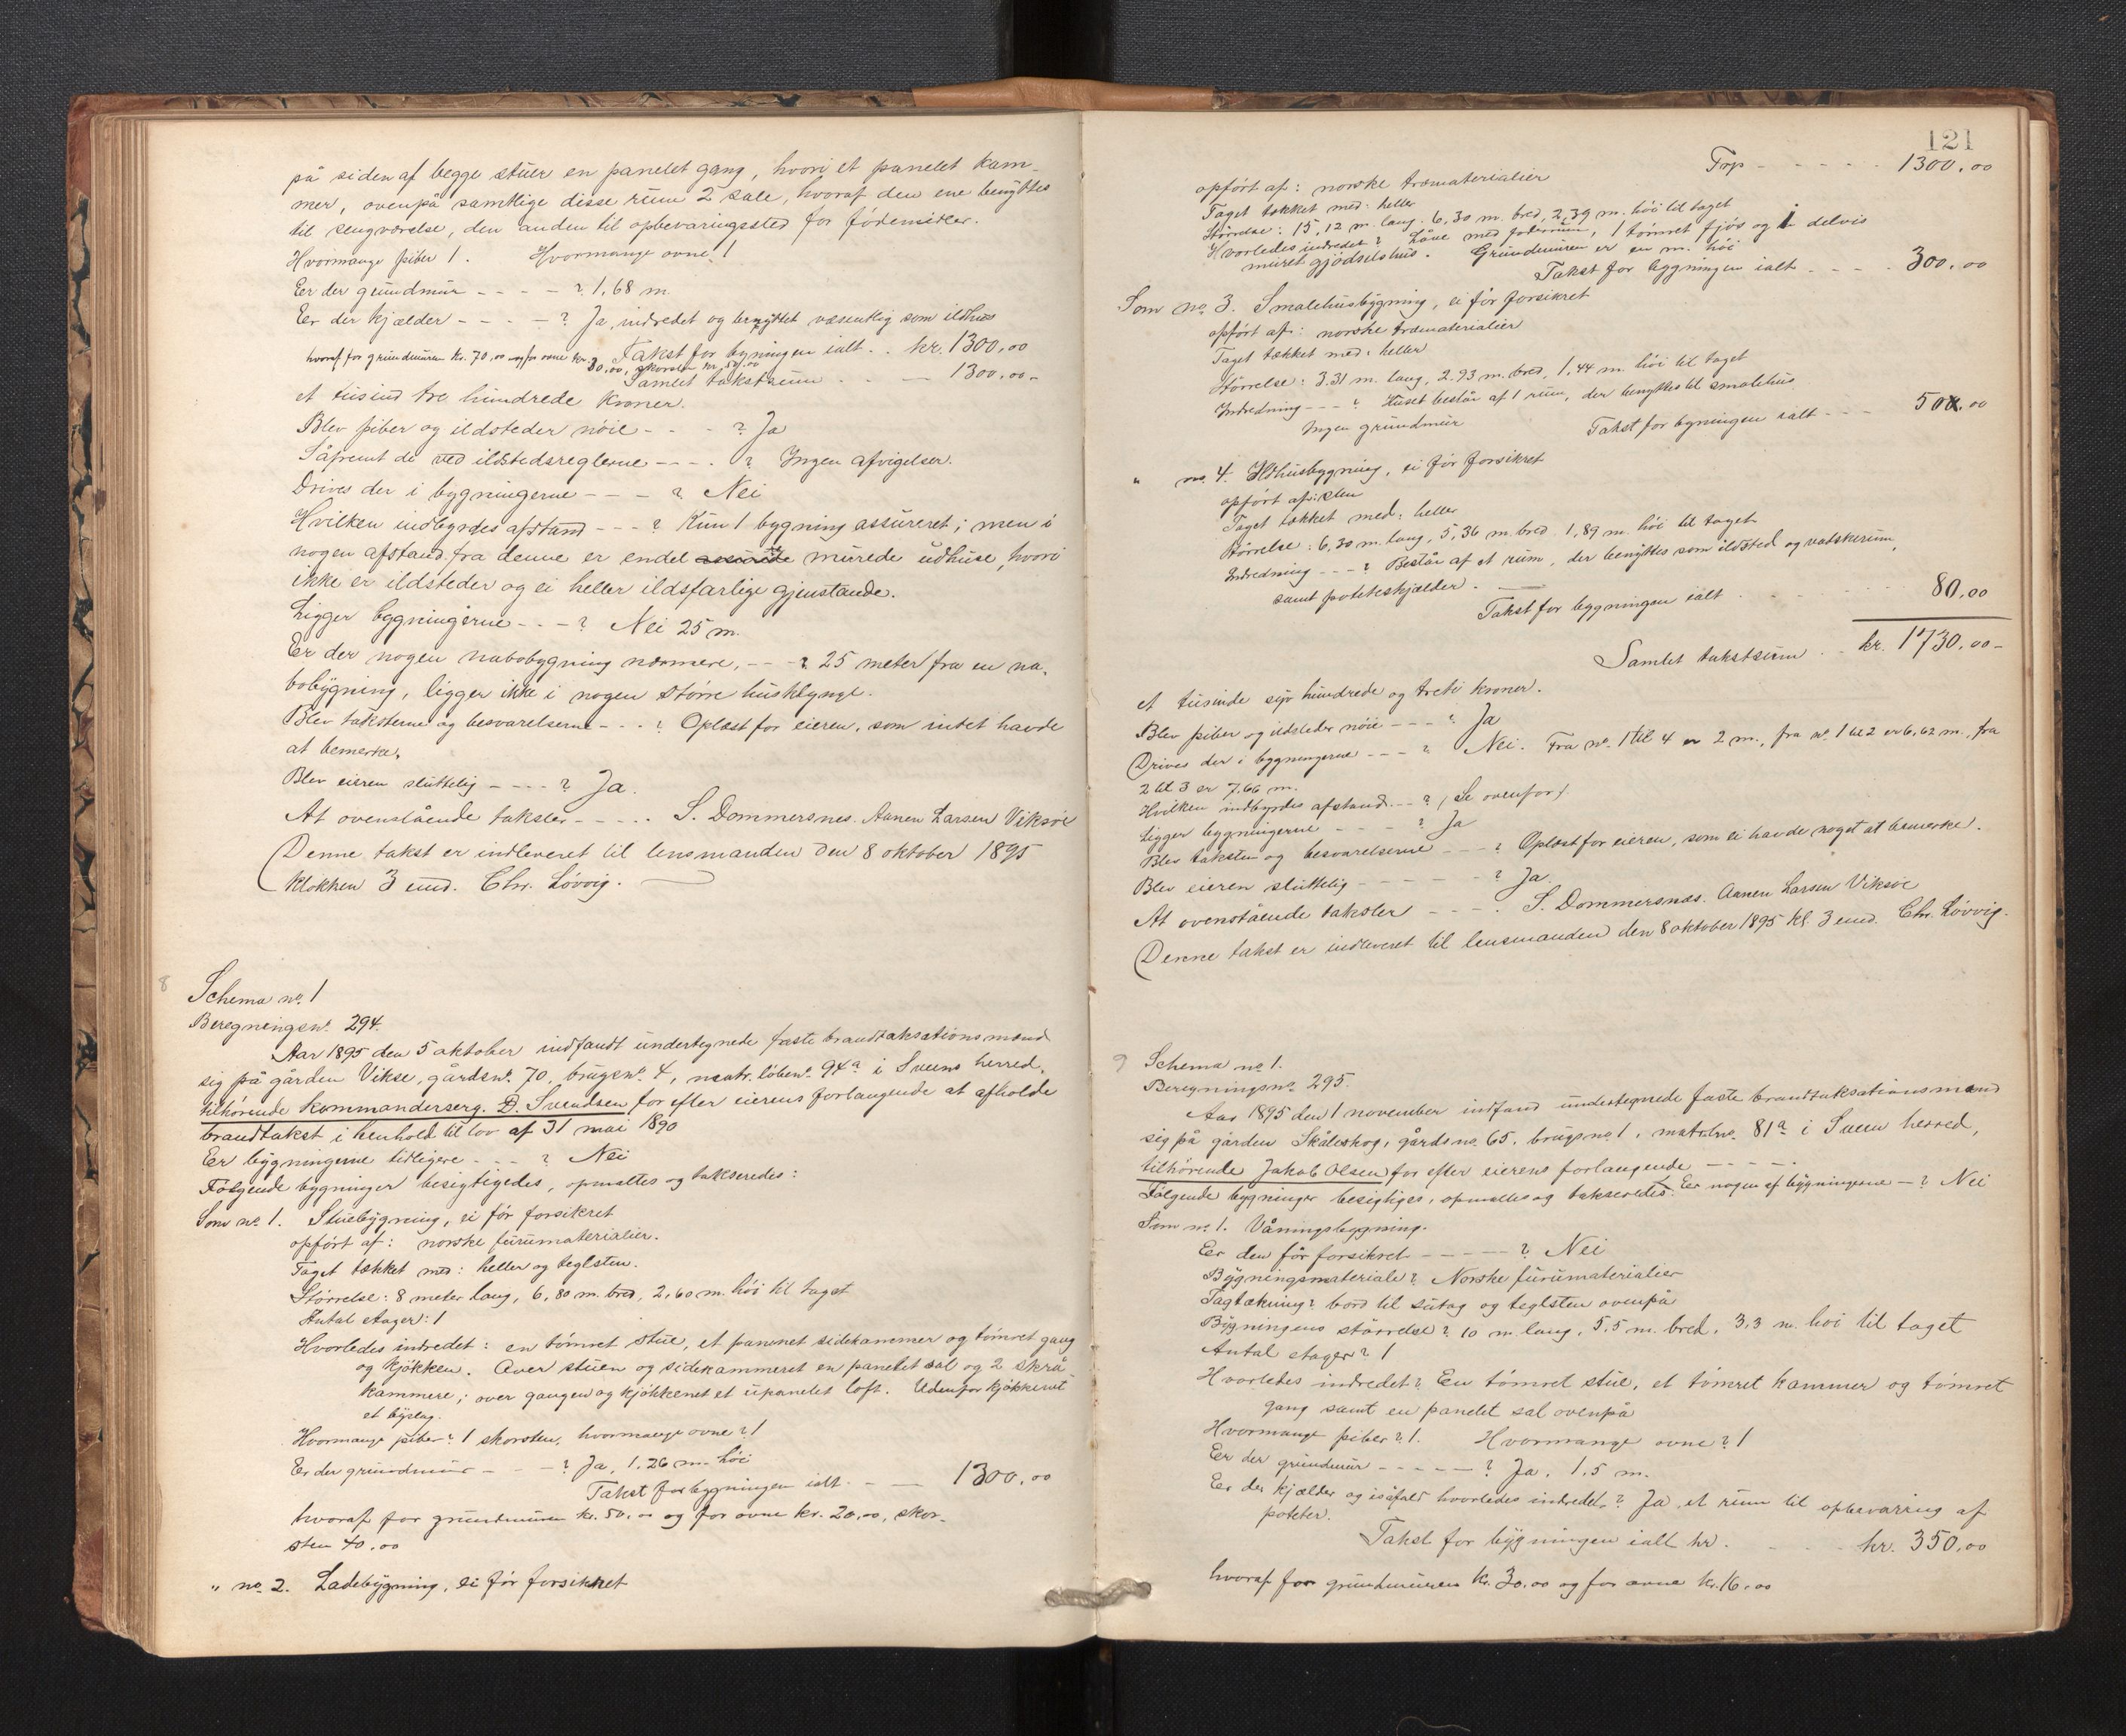 på siden af begge stuer en panelet gang, hvori et panelet kam-
mer, ovenpå samtlige disse rum 2 sale, hvoraf den ene benyttes
til sengværelse, den anden til opbevaringssted for födemidler.
Hvormange piber 1. Hvormange ovne 1
Eer der grundmur - - - - ? 1,68 m.
Eer der kjælder - - - - ? Ja, indredet og benyttet væsentlig som ildhus
Takst for bygningen ialt . . kr. 1300,00
hvoraf for grundmuren kr. 70,00 og for ovne kr. 30,00, skorsten kr. 50.00
Samlet takstsum . . — 1300,00-
et tusind tre hundrede kroner.
Blev piber og ildsteder nöie - - - ? Ja
Såfremt de ved ildstedsreglerne - - - . ? Ingen afvigelser.
Drives der i bygningerne - - - ? Nei
Hvilken indbyrdes afstand - - - ? Kun 1 bygning assureret; men i
nogen afstand fra denne er endel murede udhuse, hvori
ikke er ildsteder og ei heller ildsfarlige gjenstande.
Ligger bygningerne - - - ? Nei 25 m.
Er der nogen nabobygning nærmere, - - - ? 25 meter fra en na-
bobygning, ligger ikke i nogen större husklynge.
Blev taksterne og besvarelserne - - - ? Oplæst for eieren, som intet havde
at bemerke.
Blev eieren sluttelig - - - - ? Ja.
At ovenstående takster - - - - . S. Dommersnes. Aanen Larsen Viksöe
Denne takst er indleveret til lensmanden den 8 oktober 1895
klokken 3 emd. Chr. Lövvig.
8
Schema no. 1
Beregningsno. 294.
Aar 1895 den 5 oktober indfandt undertegnede faste brandtaksationsmænd
sig på gården Vikse, gårdsno. 70, brugsno. 4, matr. löbeno. 94a i Sveens herred,
tilhörende Kommanderserg. D. Svendsen for efter eierens forlangende at afholde
brandtakst i henhold til lov af 31 mai 1890
Eer bygningerne tidligere - - - ? Nei
Fölgende bygninger besigtigedes, opmaltes og takseredes:
Som no. 1. Stuebygning, ei för forsikret
opfört af: norske furumaterialier.
Taget tækket med: heller og teglsten.
Störrelse: 8 meter lang, 6,80 m. bred, 2,60 m. höi til taget
Antal etager: 1
Hvorledes indredet: en tömret stue, et sidekammer og tömret gang
og kjökken. Over stuen og sidekammeret en panelet sal og 2 skrå
kammere; over gangen og kjökkenet et upanelet loft. Udenfor kjökkenet
et bislag.
Hvormange piber? 1 skorsten, hvormange ovne? 1
Er der grundmur - - - ? Ja, 1,26 m. höi
Takst for bygningen ialt . — — 1300.00
hvoraf for grundmuren kr. 50,00 og for ovne kr. 20,00, skor-
sten 40.00
" no. 2. Ladebygning, ei för forsikret
121
Trp - - - - - 1300.00
opfört af: norske træmaterialier
Taget tækket med: heller
Störrelse: 15,12 m. lang. 6,30 m. bred, 2,39 m. höi til taget
Hvorledes indredet? Låve med foderrum, 1 tömret fjös og 1 delvis
muret gjödselshus. Grundmuren er en m. höi
Takst for bygningen ialt - - - 300,00
Som no. 3. Smalehusbygning, ei för forsikret
opfört af: norske træmaterialier
Taget tækket med: heller
Störrelse: 3.31 m. lang, 2.93 m. bred, 1,44 m. höi til taget
Indredning - - - ? Huset består af 1 rum, der benyttes til smalehus
Ingen grundmur
Takst for bygningen ialt - - - 50.00
" no. 4. Ildhusbygning, ei för forsikret
opfört af: sten
Taget tækket med: heller
Störrelse: 6,30 m. lang, 5,36 m. bred. 1,89 m. höi til taget
Indredning - - - ? Består af et rum, der benyttes som ildsted og vadskerum,
samt poteteskjælder.
Takst for bygningen ialt . . . 80,00
Samlet takstsum . . kr. 1730.00-
et tusinde syv hundrede og treti kroner.
Blev piber og ildsteder nöie - - - ? Ja
Drives der i bygningerne - - - ? Nei. Fra no. 1 til 4 er 2 m., fra no. 1 til 2 er 6,62 m., fra
2 til 3 er 7.66 m.
Hvilken indbyrdes afstand - - ? (Se ovenfor)
Ligger bygningerne - - - - ? Ja
Blev taksten og besvarelserne - - - ? Oplæst for eieren, som ei havde noget at bemerke.
Blev eieren sluttelig - - - - - ? Ja.
At ovenstående takster - - - . S. Dommersnæs. Aanen Larsen Viksöe
Denne takst er indleveret til lensmanden den 8 oktober 1895 kl. 3 emd. Chr. Lövvig.
9
Schema no. 1.
Beregningsno. 295.
Aar 1895 den 1 november indfand undertegnede faste brandtaksationsmænd
sig på gården Skåleskog, gårdsno. 65, brugsno. 1, matr. lno. 81a i Sveen herred,
tilhörende Jakob Olsen for efter eierens forlangende - - - - .
Fölgende bygninger besigtiges, opmaltes og takseredes. Eer nogen af bygningerne - ? Nei
Som no. 1. Våningsbygning.
Eer den för forsikret - - - - - ? Nei
Bygningsmateriale? Norske furumaterialier
Tagtækning? bord til sutag og teglsten ovenpå
Bygningens störrelse? 10 m. lang, 5,5 m. bred. 3,3 m. höi til taget
Antal etager? 1
Hvorledes indredet? En tömret stue, et tömret kammer og tömret
gang samt en panelet sal ovenpå
Hvormange piber? 1. Hvormange ovne? 1
Eer der grundmur - - - - - ? Ja. 1.5 m.
Eer der kjælder og isåfald hvorledes indredet? Ja et rum til opbevaring af
poteter.
Takst for bygningen ialt kr. - - - kr. 350,00
hvoraf for grundmuren kr. 30.00 og for ovne kr. 16.00